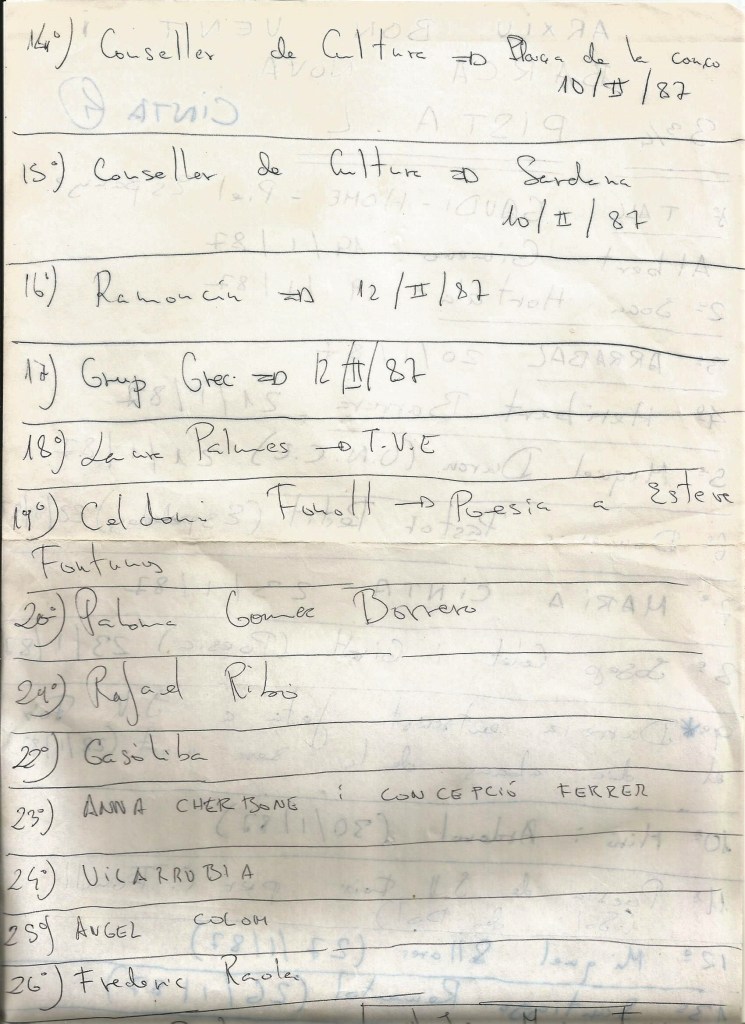 14º) Conseller de Cultura ⇒ Plaça de la
10/II/87
15º) Conseller de Cultura ⇒ Sardana
10/II/87
16º) Ramoncin ⇒ 12/II/87
17) Grup Grec ⇒ 12/II/87
18º) Laura Palmes → T.V.E
19º) Celdoni Fonoll → Poesia a Esteve
20º) Paloma Gomez Borrero
21º) Rafael Ribó
22º) Gasòliba
23º) ANNA CHERBONE i CONCEPCIÓ FERRER
24º) VILARRUBIA
25º) ANGEL COLOM
26º) Frederic